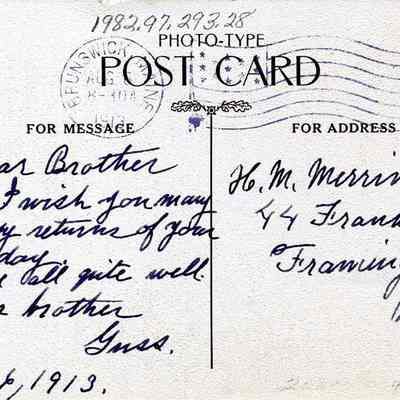 1982.97.293.28
PHOTO-TYPE
POST CARD
BRUNSWICK MAINE
AUG
1913
FOR MESSAGE
FOR ADDRESS
ar Brother
I wish you many
y returns of your
day.
all quite well.
r brother
Guss.
6, 1913.
H. M. Merrin
44 Frank
Framing